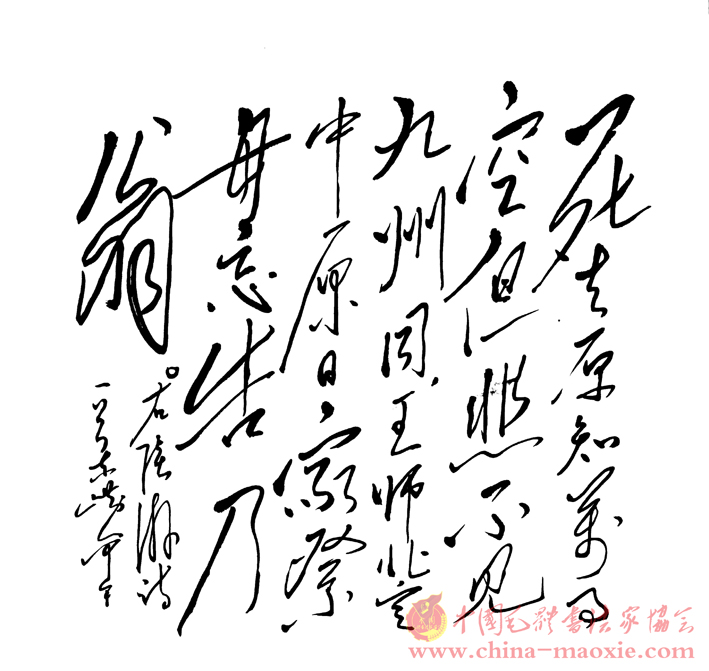 死去原知萬事
空但悲不见
九州同王师北定
中原日家祭
毋忘告乃
翁
右陆游诗
中國毛體書法家協会
www.china-maoxie.com